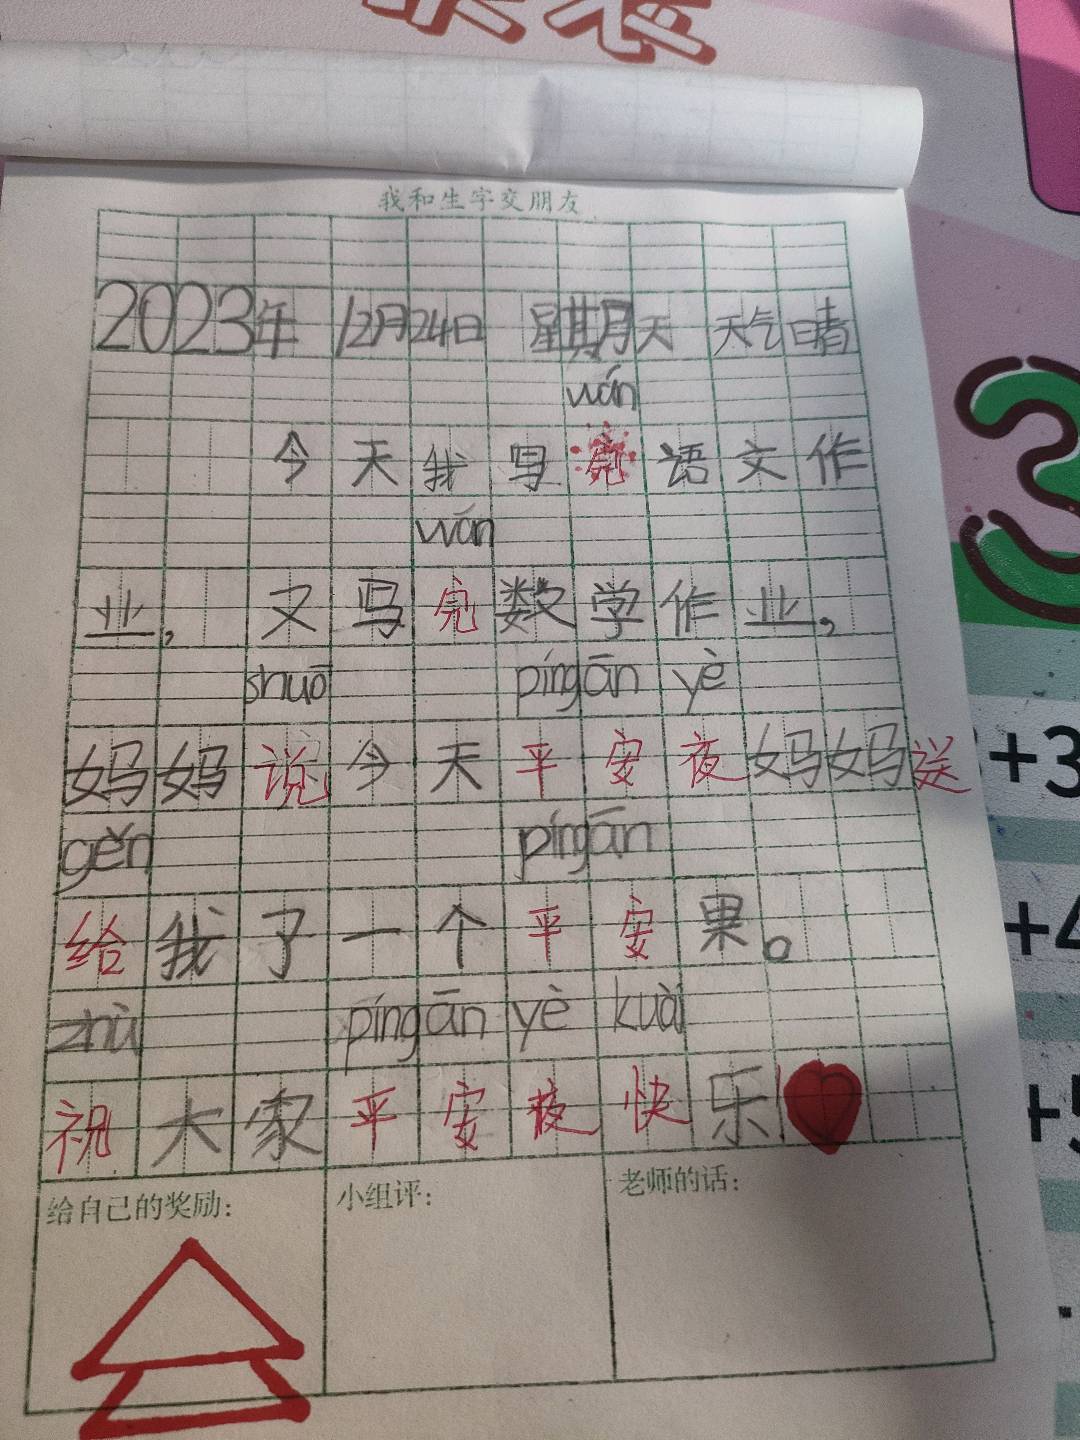 我和生字交朋友
2023年 12月24日 星期天 天气晴
wán
今天我写完语文作
wán
业，又写完数学作业，
shuō píngān yè
妈妈说今天平安夜妈妈送
gěn píngān
给我了一个平安果。
zhù píngān yè kuài
祝大家平安夜快乐
给自己的奖励：
小组评：
老师的话：
3
+3
+4
+5